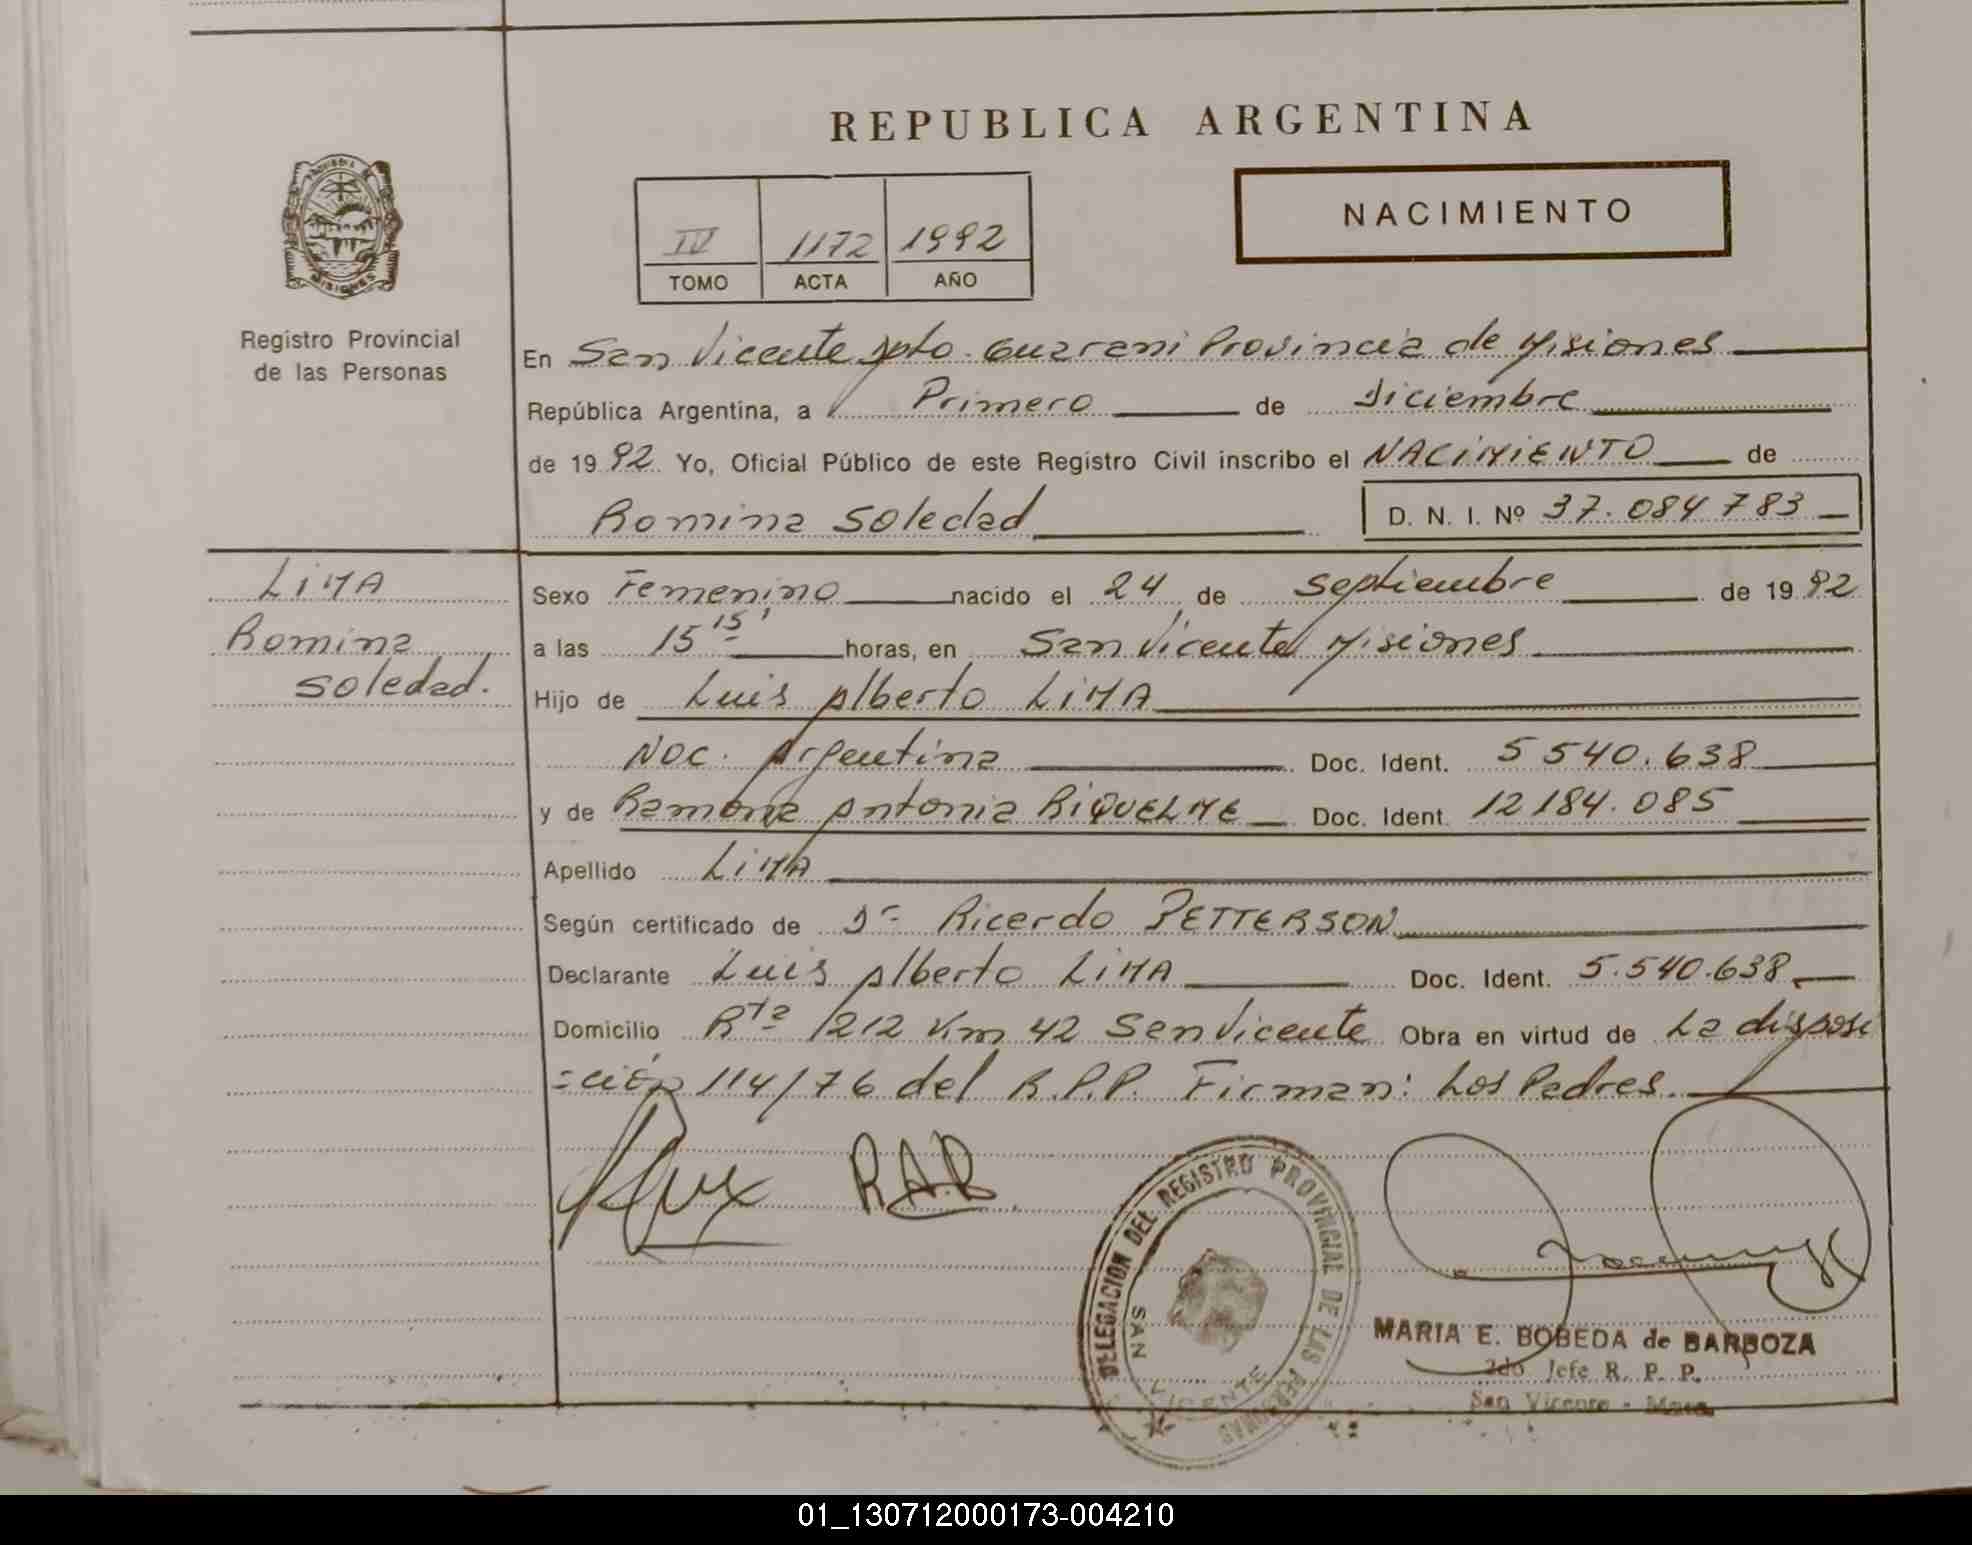 REPUBLICA ARGENTINA
NACIMIENTO
IV 1172 1992
TOMO ACTA AÑO
PROVINCIA
MISIONES
Registro Provincial
de las Personas
En San Vicente Dpto. Guarani Provincia de Misiones
República Argentina, a Primero de Diciembre
de 1992 Yo, Oficial Público de este Registro Civil inscribo el NACIMIENTO de
Romina Soledad D. N. I. Nº 37.084783
LIMA
Romina
Soledad.
Sexo Femenino nacido el 24 de Septiembre de 1992
a las 15 15' horas, en San Vicente Misiones
Hijo de Luis Alberto LIMA
Nac. Argentina Doc. Ident. 5 540.638
y de Ramona Antonia RIQUELME Doc. Ident. 12184.085
Apellido LIMA
Según certificado de Dr Ricardo PETTERSON
Declarante Luis Alberto LIMA Doc. Ident. 5.540.638
Domicilio Rta 212 Km 42 San Vicente Obra en virtud de La disposi
=ción 114/76 del R.P.P. Firman: Los Padres
R.A.R
DELEGACION DEL REGISTRO PROVINCIAL DE LAS PERSONAS
SAN VICENTE
MARIA E. BOBEDA de BARBOZA
2do Jefe R. P. P.
San Vicente - Mnes.
01_130712000173-004210